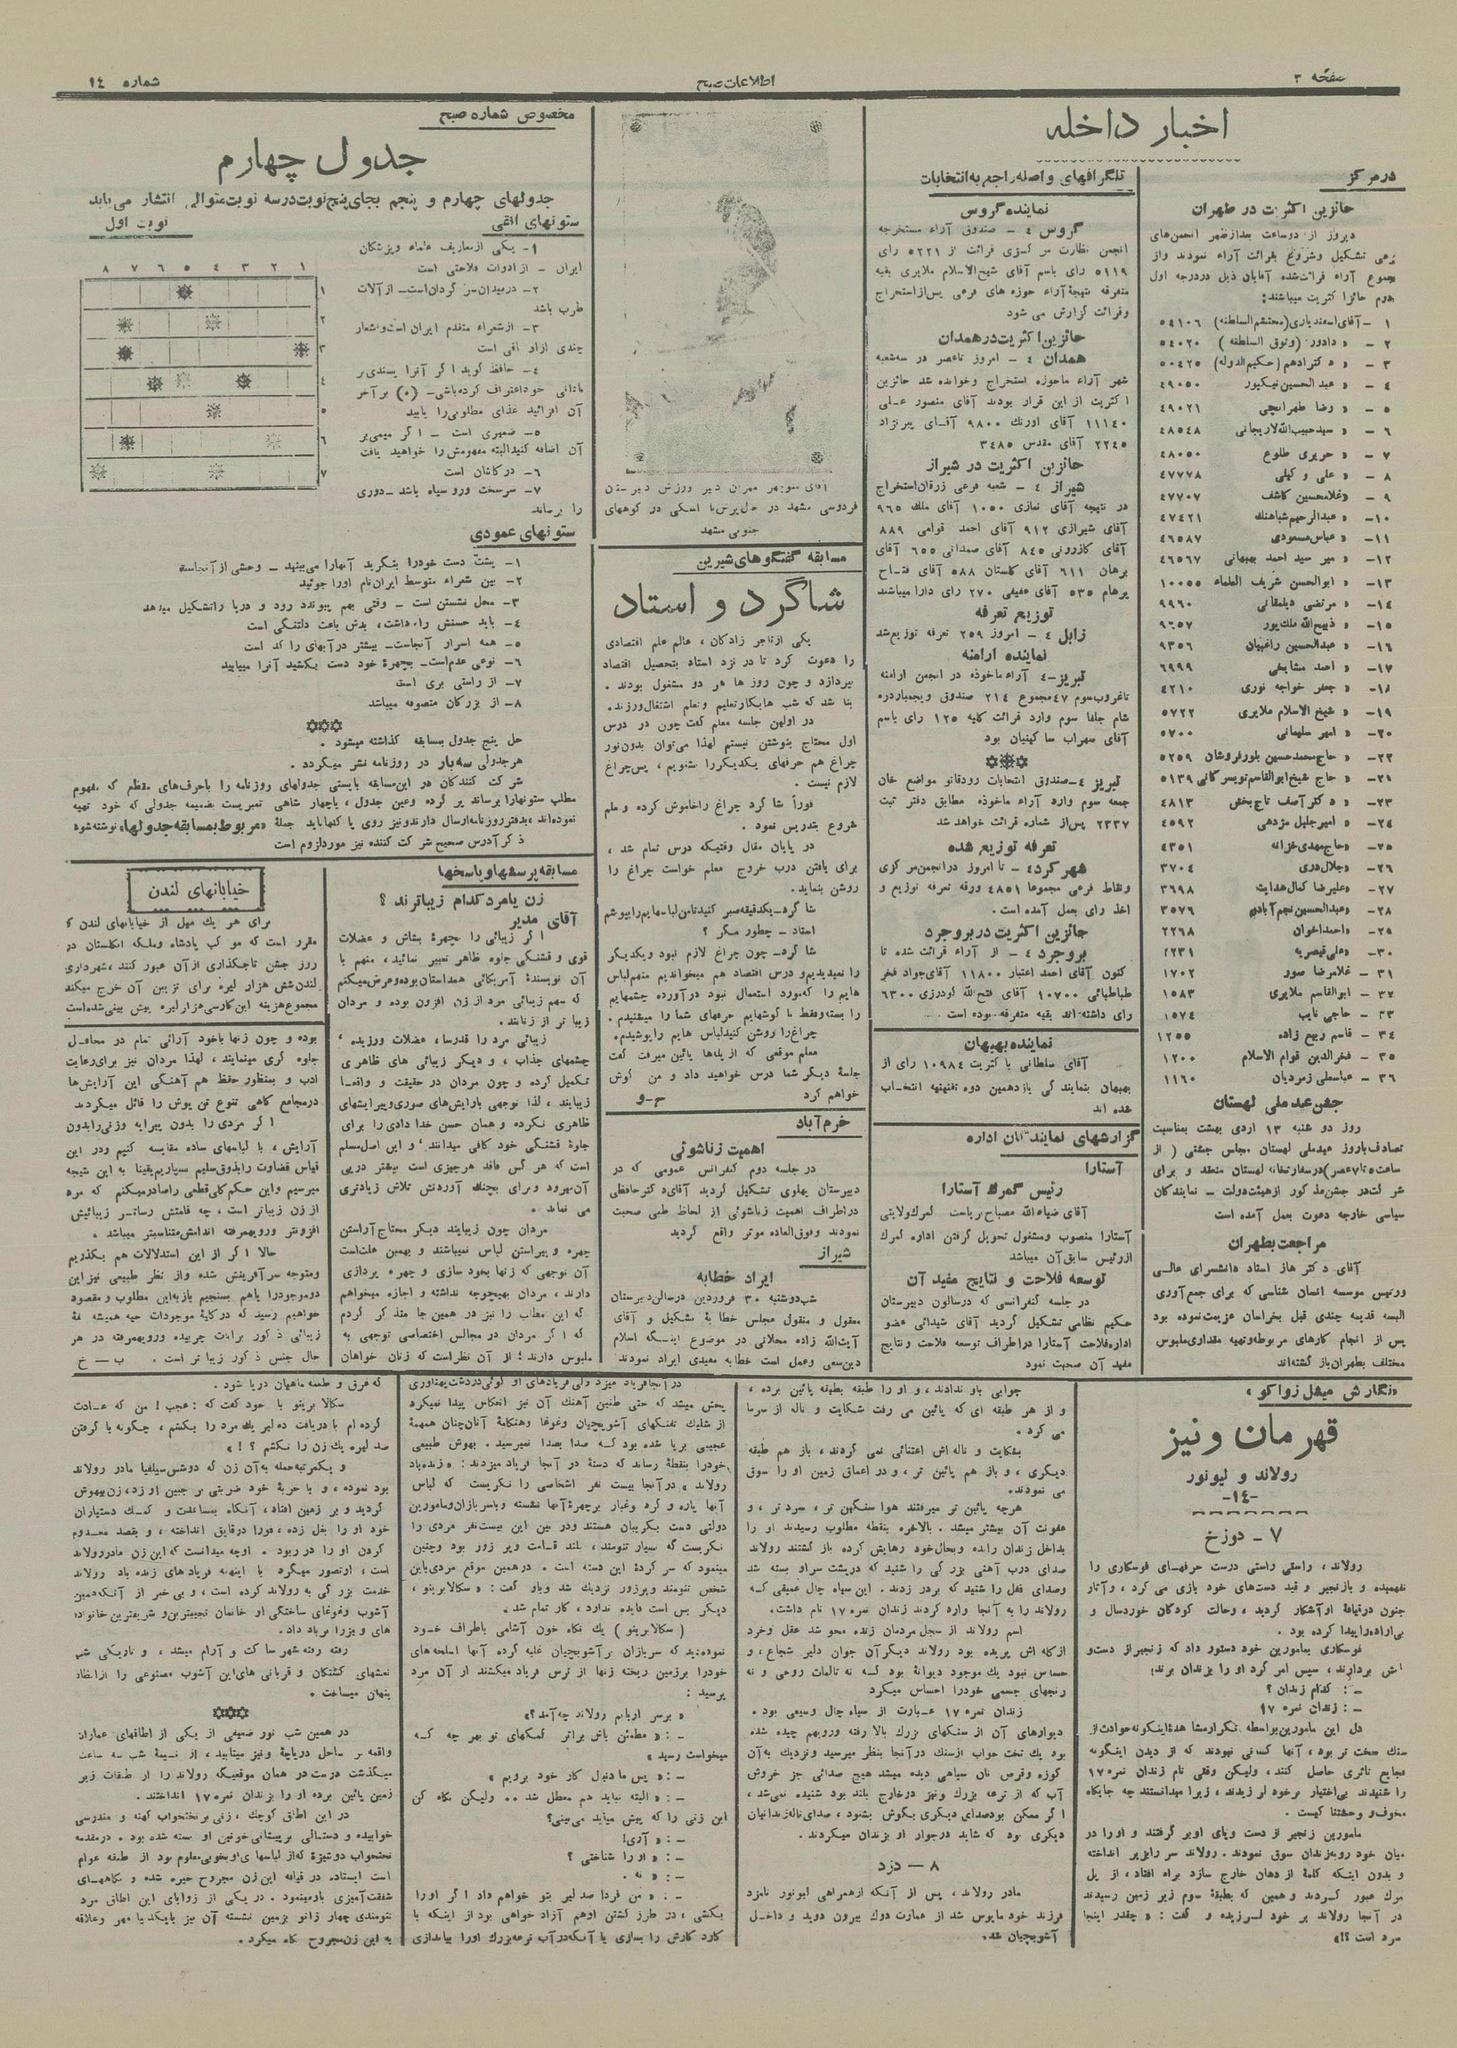 صفحه ۳
اطلاعات صبح
شماره ۱٤
اخبار داخله
در مرکز
حائزین اکثریت در طهران
دیروز از دو ساعت بعدازظهر انجمن‌های
فرعی تشکیل و شروع بقرائت آراء نمودند و از
مجموع آراء قرائت‌شده آقایان ذیل در درجه اول
و دوم حائز اکثریت میباشند:
۱ - آقای اسفندیاری (محتشم السلطنه) ٥٤۱۰٦
۲ - « دادور (وثوق السلطنه) ٥٤۰۲۰
۳ - « دکتر ادهم (حکیم الدوله) ٥۰٤۲٥
٤ - « عبدالحسین نیکپور ٤۹۰٥۰
٥ - « رضا طهرانچی ٤۹۰۲۱
٦ - « سید حبیب‌الله لاریجانی ٤۸٥٤۸
۷ - « حریری طلوع ٤۸۰٥۰
۸ - « علی وکیلی ٤۷۷۷۸
۹ - « غلامحسین کاشف ٤۷۷۰۷
۱۰- « عبدالرحیم شباهنک ٤۷٤۲۱
۱۱- « عباس مسعودی ٤٦٥۸۷
۱۲- « میر سید احمد بهبهانی ٤٦٥٦۷
۱۳- « ابوالحسن شریف العلماء ۱۰۰٥٥
۱٤- « مرتضی دیلمقانی ۹۹٦۰
۱٥- « ذبیح‌الله ملک‌پور ۹٦٥۷
۱٦- « عبدالحسین راغبیان ۹۳٥٦
۱۷- « احمد مشایخی ٦۹۹۹
۱۸- « جعفر خواجه نوری ٤۲۱۰
۱۹- « شیخ الاسلام ملایری ٥۷۲۲
۲۰- « امیر سلیمانی ٥۷۰۰
۲۲- « حاج محمدحسین بلورفروشان ٥۲٥۹
۲۱- « حاج شیخ ابوالقاسم تویسرکانی ٥۱۳۹
۲۳- « دکتر آصف تاج بخش ٤۸۱۳
۲٤- « امیر جلیل مژدهی ٤٥۹۲
۲٥- « حاج مهدی غزاله ٤۳٥۱
۲٦- « جلال دری ۳۷۰٤
۲۷- « علیرضا کمال هدایت ۳٦۹۸
۲۸- « عبدالحسین نجم آبادی ۳٥۷٦
۲۹- « احمد اخوان ۲۲٦۸
۳۰- « علی قیصریه ۲۲۳۱
۳۱ - غلامرضا صور ۱۷۰۲
۳۲ - ابوالقاسم ملایری ۱٥۸۳
۳۳ - حاجی نایب ۱٥۷٤
۳٤ - قاسم ربیع زاده ۱۲٥٥
۳٥ - فخرالدین قوام الاسلام ۱۲۰۰
۳٦ - عباسعلی زمردیان ۱۱٦۰
جشن عید ملی لهستان
روز دو شنبه ۱۳ اردی بهشت بمناسبت
تصادف باروز عید ملی لهستان مجلس جشنی ( از
ساعت ٥ تا ۷ عصر) در سفارتخانه لهستان منعقد و برای
شرکت در جشن مذکور از هیئت دولت - نمایندگان
سیاسی خارجه دعوت بعمل آمده است
مراجعت بطهران
آقای دکتر هاز استاد دانشسرای عالی
و رئیس موسسه انسان شناسی که برای جمع‌آوری
البسه قدیمه چندی قبل بخراسان عزیمت نموده بود
پس از انجام کارهای مربوطه و تهیه مقداری ملبوس
مختلف بطهران باز گشته‌اند
تلگرافهای واصله راجع به انتخابات
نماینده گروس
گروس ٤ - صندوق آراء مستخرجه
انجمن نظارت مرکزی قرائت از ٥۲۲۱ رای
٥۱۱۹ رای باسم آقای شیخ‌الاسلام ملایری بقیه
متفرقه نتیجه آراء حوزه های فرعی پس از استخراج
وقرائت گزارش می شود
حائزین اکثریت در همدان
همدان ٤ - امروز تا عصر در سه شعبه
شهر آراء ماخوذه استخراج وخوانده شد حائزین
اکثریت از این قرار بودند آقای منصور علی
۱۱۱٤۰ آقای اورنک ۹۸۰۰ آقای پیرنزاد
۲۲٤٥ آقای مقدس ۳٤۸٥
حائزین اکثریت در شیراز
شیراز ٤ - شعبه فرعی زرقان استخراج
در نتیجه آقای نمازی ۱۰٥۰ آقای ملک ۹٦٥
آقای شیرازی ۹۱۲ آقای احمد قوامی ۸۸۹
آقای کازرونی ۸٤٥ آقای صمدانی ٦٥٥ آقای
برهان ٦۱۱ آقای گلستان ٥۸۸ آقای فتاح
پرهام ٥۳٥ آقای عفیفی ۲۷۰ رای دارا میباشند
توزیع تعرفه
زابل ٤ - امروز ۲٥۹ تعرفه توزیع شد
نماینده ارامنه
تبریز-٤ آراء ماخوذه در انجمن ارامنه
تاغروب سوم ٤۷ مجموع ۲۱٤ صندوق
شام جلفا سوم وارد قرائت کلیه ۱۲٥ رای باسم
آقای سهراب ساکینیان بود
تبریز ٤- صندوق انتخابات رودقانو مواضع خان
جمعه سوم وارد آراء ماخوذه مطابق دفتر ثبت
۲۳۳۷ پس از شماره قرائت خواهد شد
تعرفه توزیع شده
شهرکرد ٤ - تا امروز در انجمن مرکزی
ونقاط فرعی مجموعا ٤۸٥۱ ورقه تعرفه توزیع و
اخذ رای بعمل آمده است.
حائزین اکثریت در بروجرد
بروجرد ٤ - از آراء قرائت شده تا
کنون آقای احمد اعتبار ۱۱۸۰۰ آقای جواد فخر
طباطبائی ۱۰۷۰۰ آقای فتح الله لودرزی ٦۳۰۰
رای داشته‌اند بقیه متفرقه بوده است
نماینده بهبهان
آقای سلطانی با کثریت ۱۰۹۸٤ رای از
بهبهان بنمایندگی یازدهمین دوره تقنینیه انتخاب
شده اند
گزارشهای نمایندگان اداره
آستارا
رئیس گمرک آستارا
آقای ضیاءالله مصباح بریاست گمرک ولایتی
آستارا منصوب و مشغول تحویل گرفتن اداره گمرک
از رئیس سابق آن میباشد
توسعه فلاحت و نتایج مفید آن
در جلسه کنفرانسی که در سالون دبیرستان
حکیم نظامی تشکیل گردید آقای شیدائی عضو
اداره فلاحت آستارا در اطراف توسعه فلاحت و نتایج
مفید آن صحبت نمود
آقای منوچهر مهران دبیر ورزش دبیرستان
فردوسی مشهد در حال پرش با اسکی در کوههای
جنوبی مشهد
مسابقه گفتگوهای شیرین
شاگرد و استاد
یکی از تاجر زادگان، عالم علم اقتصادی
را دعوت کرد تا در نزد استاد بتحصیل اقتصاد
بپردازد و چون روز ها هر دو مشغول بودند.
بنا شد که شب ها بکار تعلیم و تعلم اشتغال ورزند.
در اولین جلسه معلم گفت چون در درس
اول محتاج بنوشتن نیستم لهذا می‌توان بدون نور
چراغ هم حرفهای یکدیگر را شنویم، پس چراغ
لازم نیست.
فوراً شاگرد چراغ را خاموش کرده و معلم
شروع بتدریس نمود.
در پایان مقال وقتیکه درس تمام شد،
برای یافتن درب خروج معلم خواست چراغ را
روشن بنماید.
شاگرد- یکدقیقه صبر کنید تا من لباسهایم را بپوشم
استاد - چطور مگر؟
شاگرد- چون چراغ لازم نبود ویکدیگر
را نمیدیدیم و درس اقتصاد هم میخواندیم منهم لباس
هایم را که مورد استعمال نبود در آورده چشمهایم
را بسته و فقط با گوشهایم حرفهای شما را میشنیدم.
چراغ را روشن کنید لباس هایم را پوشیدم.
معلم موقعی که از پله‌ها پائین میرفت گفت
جلسه دیگر شما درس خواهید داد و من گوش
خواهم کرد م-و
خرم آباد
اهمیت زناشوئی
در جلسه دوم کنفرانس عمومی که در
دبیرستان پهلوی تشکیل گردید آقای دکتر حافظی
در اطراف اهمیت زناشوئی از لحاظ طبی صحبت
نمودند و فوق‌العاده موثر واقع گردید
شیراز
ایراد خطابه
شب دوشنبه ۳۰ فروردین در سالن دبیرستان
معقول و منقول مجلس خطابه تشکیل و آقای
آیت‌الله زاده محلاتی در موضوع اینکه اسلام
دین سعی وعمل است خطابه مفیدی ایراد نمودند
مخصوص شماره صبح
جدول چهارم
جدولهای چهارم و پنجم بجای پنج نوبت در سه نوبت متوالی انتشار می یابد
نوبت اول
ستونهای افقی
۱ ۲ ۳ ٤ ٥ ٦ ۷ ۸
۱
۲
۳
٤
٥
٦
۷
۱- یکی از معاریف علماء و پزشکان
ایران - از ادوات فلاحتی است
۲- در میدان سر گردان است - از آلات
طرب باشد
۳- از شعراء متقدم ایران است و اشعار
چندی از او باقی است
٤- حافظ گوید اگر آنرا پسندی بر
نادانی خود اعتراف کرده باشی - (ه) بر آخر
آن افزائید غذای مطلوبی را یابید
٥- ضمیری است - اگر میمی بر
آن اضافه کنید البته مفهومش را خواهید یافت
٦- در کاشان است
۷- سر سخت و رو سیاه باشد - دوری
را برساند
ستونهای عمودی
۱- پشت دست خود را بنگرید آنهارا می‌بینید - وحشی از آنجاست
۲- بین شعراء متوسط ایران نام اورا جوئید
۳- محل نشستن است - وقتی بهم پیوندد رود و دریا را تشکیل میدهد
٤- باید حسنش را داشت، بدش باعث دلتنگی است
٥- همه اسرار آنجاست- بیشتر در آبهای راکد است
٦- نوعی عدم است- بچهره خود دست بکشید آنرا مییابید
۷- از راستی بری است
۸- از بزرگان متصوفه میباشد
حل پنج جدول بمسابقه گذاشته میشود.
هر جدولی سه بار در روزنامه نشر میگردد.
شرکت کنندگان در این مسابقه بایستی جدولهای روزنامه را با حرف‌های مقطعه که مفهوم
مطلب ستونها را برساند پر کرده وعین جدول، با چهار شاهی تمبر پست بضمیمه جدولی که خود تهیه
نموده‌اند، بدفتر روزنامه ارسال دارند و نیز روی پاکتها باید جمله «مربوط بمسابقه جدولها» نوشته شود
ذکر آدرس صحیح شرکت کننده نیز مورد لزوم است
مسابقه پرسشها و پاسخها
زن یا مرد کدام زیباترند؟
آقای مدیر
اگر زیبائی را چهره بشاش و عضلات
قوی و قشنگی جلوه ظاهر تعبیر نمائید، منهم با
آن نویسنده آمریکائی همداستان بوده و عرض میکنم
که سهم زیبائی مرد از زن افزون بوده و مردان
زیبا تر از زنانند.
زیبائی مرد را قد رسا، عضلات ورزیده،
چشمهای جذاب، و دیگر زیبائی های ظاهری
تکمیل کرده و چون مردان در حقیقت و واقعاً
زیبایند، لذا توجهی بآرایش‌های صوری وپیرایشهای
ظاهری نکرده و همان حسن خدا دادی را برای
جلوه قشنگی خود کافی میدانند، و این اصل مسلم
است که هر کس فاقد هر چیزی است بیشتر در پی
آن میرود و برای بچنگ آوردنش تلاش زیادتری
می نماید.
مردان چون زیبایند دیگر محتاج آراستن
چهره و پیراستن لباس نمیباشند و بهمین علت است
آن توجهی که زنها بخود سازی و چهره پردازی
دارند، مردان بهیچوجه نداشته و اجازه میخواهم
که این مطلب را نیز در همین جا متذکر گردم
که اگر مردان در مجالس اختصاصی توجهی به
ملبوس دارند؛ از آن نظر است که زنان خواهان
خیابانهای لندن
برای هر یک میل از خیابانهای لندن که
مقرر است که موکب پادشاه وملکه انگلستان در
روز جشن تاجگذاری از آن عبور کنند، شهرداری
لندن شش هزار لیره برای تزیین آن خرج میکند
مجموع هزینه این کار سی هزار لیره پیش بینی شده است
بوده و چون زنها باخود آرائی تمام در محافل
جلوه گری مینمایند، لهذا مردان نیز برای رعایت
ادب و بمنظور حفظ هم آهنگی این آرایش‌ها
در مجامع گاهی تنوع تن پوش را قائل میگردند
اگر مردی را بدون پیرایه وزنی را بدون
آرایش، با لباسهای ساده مقایسه کنیم ودر این
قیاس قضاوت را بذوق سلیم بسپاریم یقینا به این نتیجه
میرسیم و این حکم کلی قطعی را صادر میکنم که مرد
از زن زیباتر است، چه قامتش رساتر، زیبائیش
افزونتر و رویهمرفته اندامش متناسبتر میباشد.
حالا اگر از این استدلالات هم بگذریم
ومتوجه سر آفرینش شده و از نظر طبیعی نیز این
دو موجود را باهم بسنجیم باز به این مطلوب و مقصود
خواهیم رسید که در کلیه موجودات حیه همیشه
زیبائی ذکور برانات چربیده و رویهمرفته در هر
حال جنس ذکور زیبا تر است. ب - خ
«نگارش میشل زواکو»
قهرمان ونیز
رولاند و لیونور
-۱٤-
۷ - دوزخ
رولاند، راستی راستی درست حرفهای فوسکاری را
نفهمیده و بازنجیر و قید دست‌های خود بازی می کرد، و آثار
جنون در قیافه او آشکار گردید، و حالت کودکان خوردسال و
بی‌اراده را پیدا کرده بود.
فوسکاری بمامورین خود دستور داد که زنجیر از دست و
پاش بردارند، سپس امر کرد او را بزندان برند؛
- : کدام زندان؟
- : زندان نمره ۱۷
دل این مامورین بواسطه تکرار مشاهده اینگونه حوادث از
سنک سخت تر بود، آنها کسانی نبودند که از دیدن اینگونه
فجایع تاثری حاصل کنند، ولیکن وقتی نام زندان نمره ۱۷
را شنیدند بی‌اختیار برخود لرزیدند، زیرا میدانستند چه جایگاه
مخوف و وحشتناکیست.
مامورین زنجیر از دست وپای اوبر گرفتند و اورا در
میان خود رو بزندان سوق نمودند. رولاند سر را بزیر انداخته
و بدون اینکه کلمه از دهان خارج سازد براه افتاد، از پل
مرک عبور کردند و همین که بطبقه سوم زیر زمین رسیدند
در آنجا رولاند بر خود لرزیده و گفت: «چقدر اینجا
سرد است؟!»
جوابی باو ندادند، و او را طبقه بطبقه پائین برده،
و از هر طبقه ای که پائین می رفت شکایت و ناله از سرما
می کرد.
بشکایت و ناله‌اش اعتنائی نمی کردند، باز هم طبقه
دیگری، و باز هم پائین تر، و در اعماق زمین او را سوق
می نمودند.
هرچه پائین تر میرفتند هوا سنگین تر، سرد تر، و
عفونت آن بیشتر میشد. بالاخره بنقطه مطلوب رسیدند او را
بداخل زندان رانده و بحال خود رهایش کرده بازگشتند رولاند
صدای درب آهنی بزرگی را شنید که در پشت سر او بسته شد
وصدای قفل را شنید که بردر زدند. این سیاه چال عمیقی که
رولاند را به آنجا وارد کردند زندان نمره ۱۷ نام داشت.
اسم رولاند از سجل مردمان زنده محو شد عقل وخرد
از کله اش پریده بود رولاند دیگر آن جوان دلیر شجاع، و
حساس نبود یک موجود دیوانه بود که نه تالمات روحی و نه
رنجهای جسمی خودرا احساس میکرد
زندان نمره ۱۷ عبارت از سیاه چال وسیعی بود.
دیوارهای آن از سنگهای بزرک بالا رفته ورویهم چیده شده
بود یک تخت خواب از سنک در آنجا بنظر میرسید و نزدیک به آن
کوزه وقرص نان سیاهی دیده میشد هیچ صدائی جز خروش
آب که از ترعه بزرک ونیز در خارج بلند بود شنیده نمی‌شد،
اگر ممکن بود صدای دیگری بگوش بشنود، صدای ناله زندانیان
دیگری بود که شاید در جوار او بزندان میکردند.
۸ - دزد
مادر رولاند، پس از آنکه از همراهی لیونور نامزد
فرزند خود مایوس شد از عمارت دوک بیرون دوید و داخل
آشوبچیان شد.
در آنجا فریاد میزد ولی فریادهای او گوئی در دشت پهناوری
پخش میشد که حتی طنین آهنک آن نیز انعکاس پیدا نمیکرد
از شلیک تفنگهای آشوبچیان وغوغا وهنگامه آنان چنان همهمه
عجیبی برپا شده بود که صدا بصدا نمیرسید. بهوش طبیعی
خودرا بنقطه رساند که دسته در آنجا فریاد میزدند: «زنده باد
رولاند» در آنجا بیست نفر اشخاصی را نگریست که لباس
آنها پاره و گرد وغبار برچهره آنها نشسته و باسربازان و مامورین
دولتی دست بگریبان هستند ودر بین این بیست نفر مردی را
نگریست که بسیار تنومند، بلند قامت و پر زور بود و چنین
مینمود که سر کرده این دسته است. در همین موقع مردی باین
شخص تنومند و پرزور نزدیک شد و باو گفت: «سکالابرینو،
دیگر بس است فایده ندارد، کار تمام شد.
(سکالابرینو) یک نگاه خون آشامی باطراف خود
نموده دید که سربازان بر آشوبچیان غلبه کرده آنها اسلحه‌های
خودرا برزمین ریخته زنها از ترس فریاد میکشند از آن مرد
پرسید:
« برسر اربابم رولاند چه آمد؟»
- : « مطمئن باش براتر کمکهای تو بهر چه که
میخواست رسید»
- : « پس ما دنبال کار خود برویم»
- : « البته نباید هم معطل شد .. ولیکن نگاه کن
این زنی را که پیش میاید می‌بینی؟
- : « آری!
- : « اورا شناختی؟
- : « نه.
- : « من فردا صد لیر بتو خواهم داد اگر اورا
بکشی، در طرز کشتن اوهم آزاد خواهی بود از اینکه با
کارد کارش را بسازی یا آنکه در آب ترعه بزرک اورا بیاندازی
که غرق و طعمه ماهیان دریا شود.
سکالا برینو با خود گفت که: عجب! من که عادت
کرده ام با دریافت ده لیر یک مرد را بکشم، چگونه با گرفتن
صد لیره یک زن را نکشم؟!»
و یکمرتبه حمله به آن زن که دوشس سیلفیا مادر رولاند
بود نموده، و با حربه خود ضربتی بر جبین او زد، زن بیهوش
گردید و بر زمین افتاد، آنگاه بمساعدت و کمک دستیاران
خود او را بغل زده، فورا در قایق انداخته، و بقصد معدوم
کردن او را در ربود. او چه میدانست که این زن مادر رولاند
است، او تصور میکرد با اینهمه فریادهای زنده باد رولاند
خدمت بزرگی به رولاند کرده است، و بی خبر از آنکه همین
آشوب وغوغای ساختگی او خانمان نجیبترین و شریفترین خانواده
های ونیز را برباد داد.
رفته رفته شهر ساکت و آرام میشد، و تاریکی شب
نعشهای کشتگان و قربانی های این آشوب مصنوعی را از انظار
پنهان میساخت.
در همین شب نور ضعیفی از یکی از اطاقهای عمارات
واقعه بر ساحل دریاچه ونیز میتابید، از نیمه شب سه ساعت
میگذشت درست در همان موقعیکه رولاند را از طبقات زیر
زمین پائین برده او را بزندان نمره ۱۷ انداختند.
در این اطاق کوچک، زنی بر تختخواب کهنه و مندرسی
خوابیده و دستمالی بر پیشانی خونین او بسته شده بود. در مقدمه
تختخواب دوشیزه که از لباسهای او بخوبی معلوم بود از طبقه عوام
است ایستاده، در قیافه این زن مجروح خیره شده و نگاههای
شفقت‌آمیزی باو مینمود. در یکی از زوایای این اطاق مرد
تنومندی چهار زانو بزمین نشسته آن نیز با یکدنیا مهر و علاقه
به این زن مجروح نگاه میکرد.